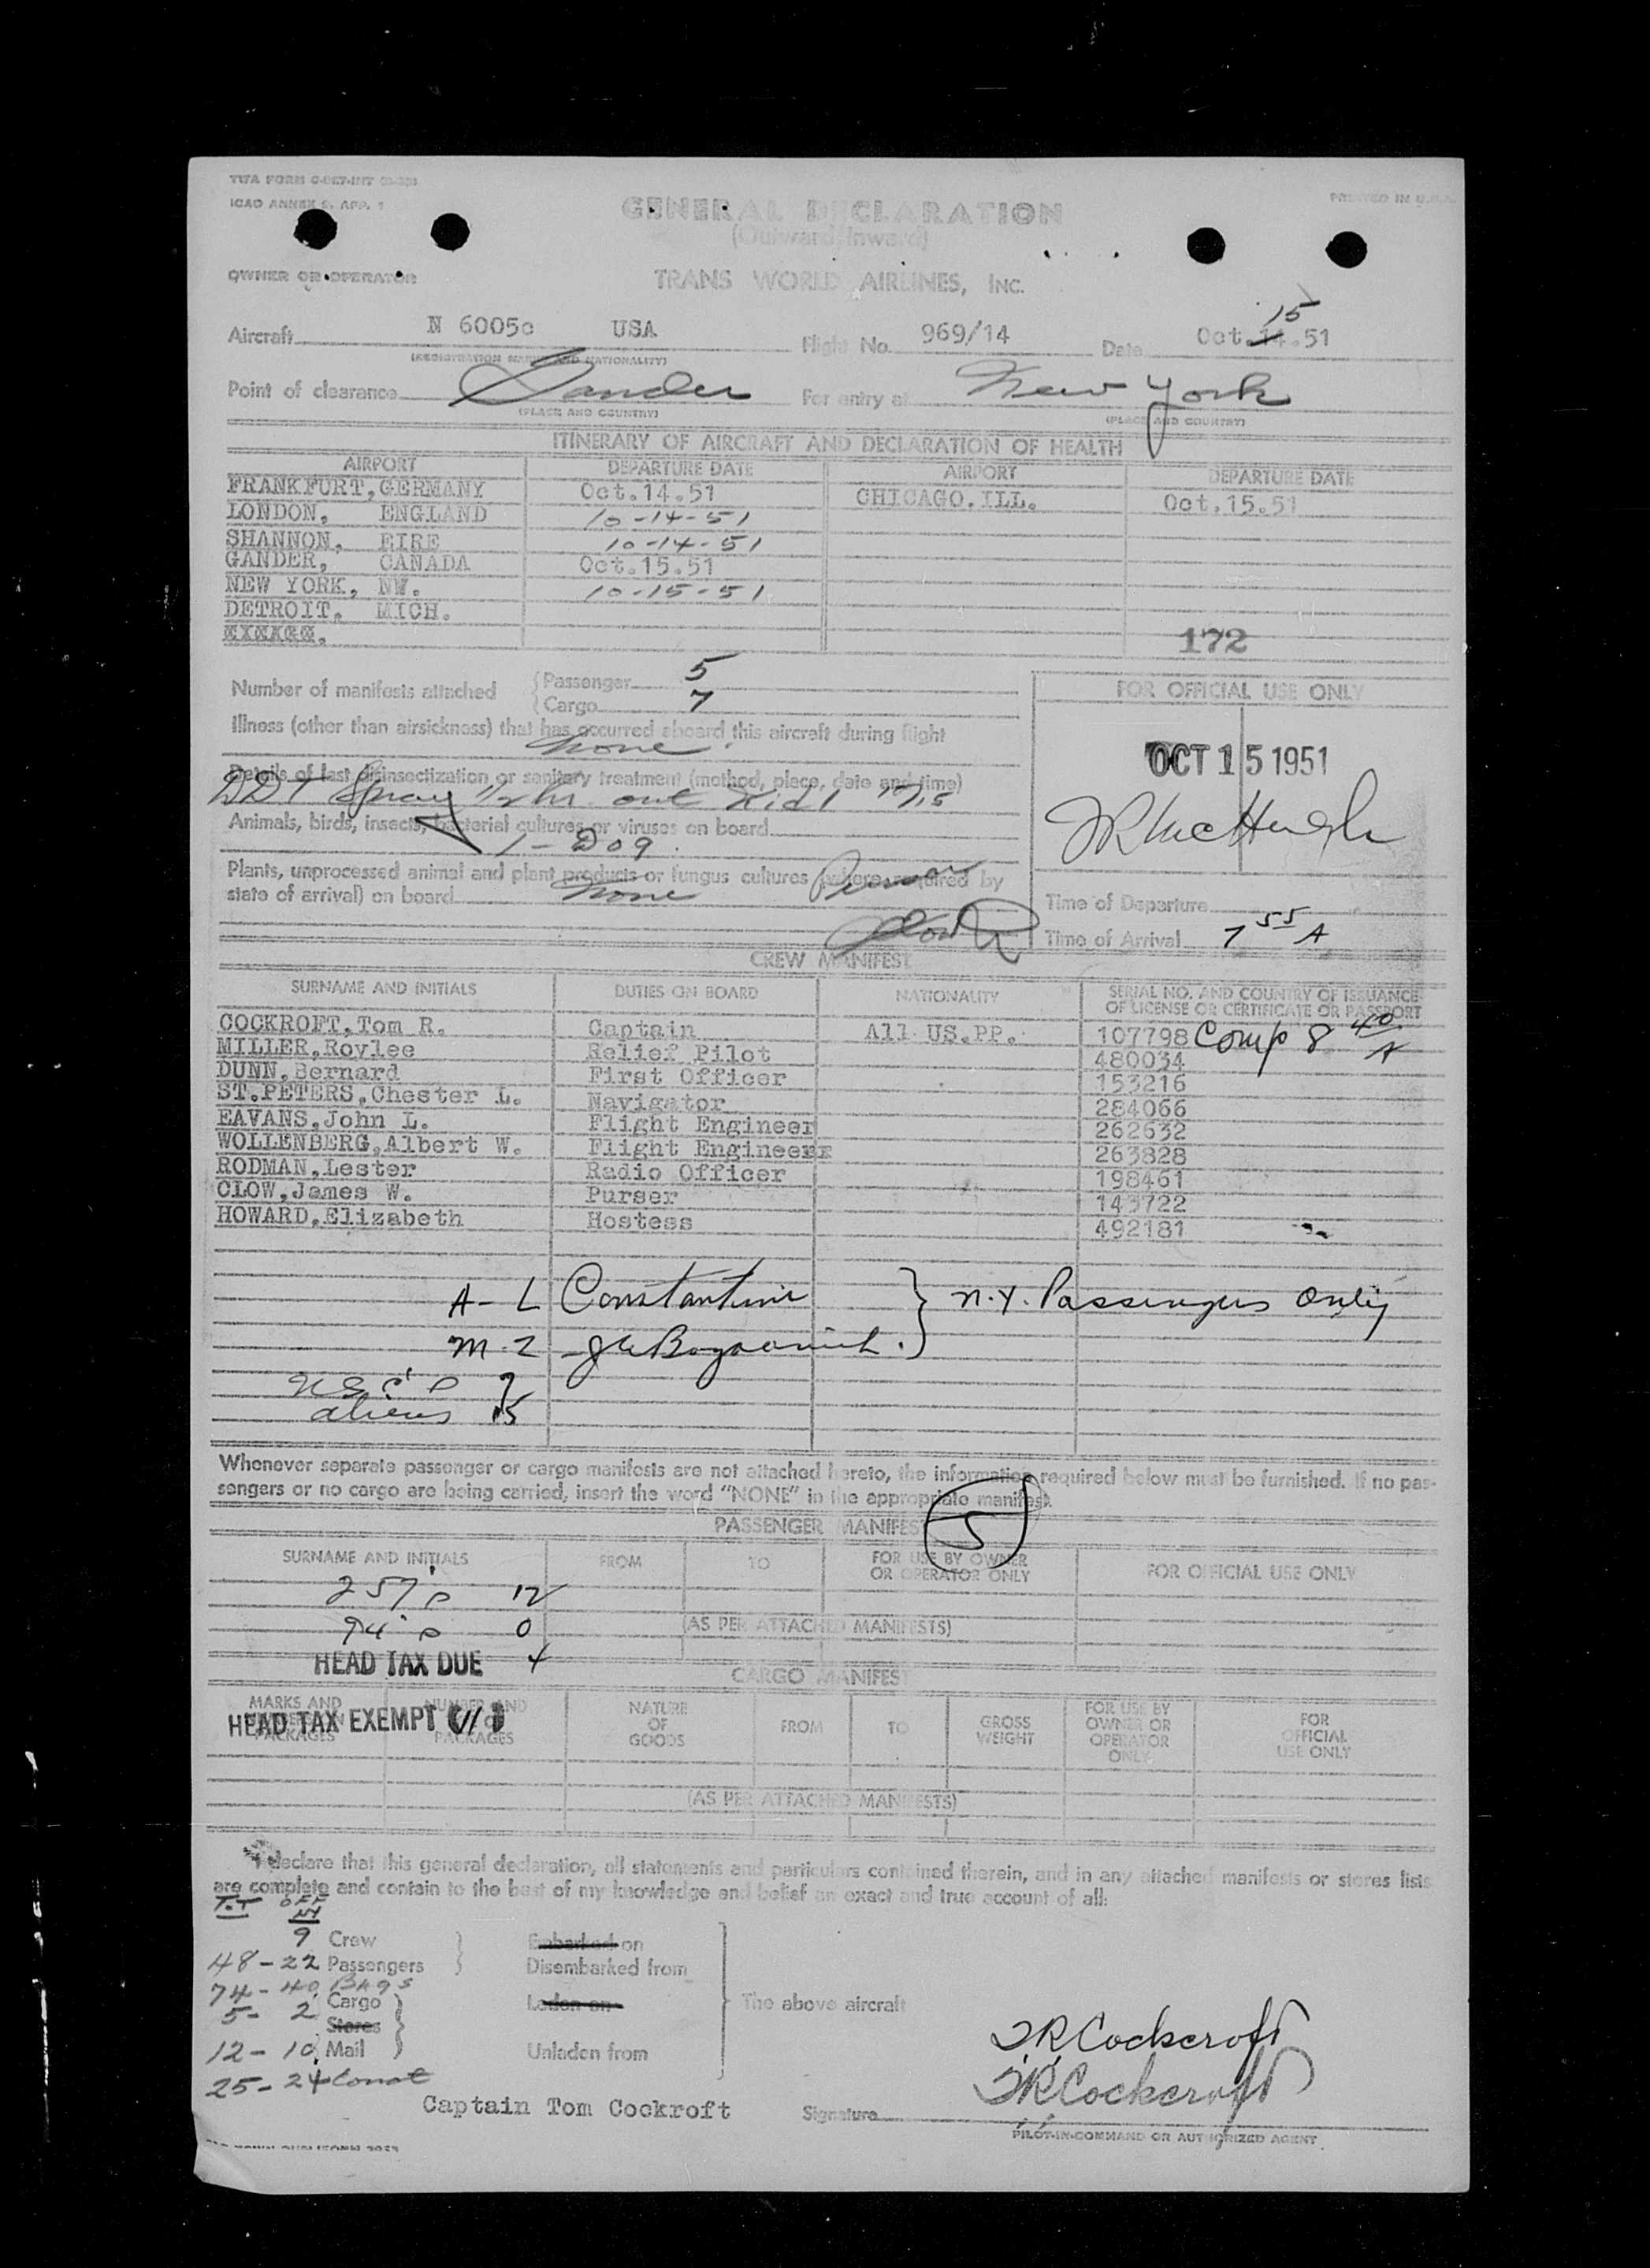 ICAO ANNEX 9, APP. 1
PRINTED IN U.S.A.
GENERAL DECLARATION
(Outward/Inward)
OWNER OR OPERATOR TRANS WORLD AIRLINES, INC.
15
Aircraft N 6005c USA Flight No. 969/14 Date Oct.14.51
(REGISTRATION MARKS AND NATIONALITY)
Point of clearance Gander For entry at New York
(PLACE AND COUNTRY) (PLACE AND COUNTRY)
ITINERARY OF AIRCRAFT AND DECLARATION OF HEALTH
AIRPORT DEPARTURE DATE AIRPORT DEPARTURE DATE
FRANKFURT,GERMANY Oct.14.51 CHICAGO.ILL. Oct.15.51
LONDON, ENGLAND 10-14-51
SHANNON, EIRE 10-14-51
GANDER, CANADA Oct.15.51
NEW YORK, NW. 10-15-51
DETROIT, MICH.
172
Number of manifests attached Passenger 5
Cargo 7
FOR OFFICIAL USE ONLY
Illness (other than airsickness) that has occurred aboard this aircraft during flight
None.
OCT 15 1951
Details of last disinsectization or sanitary treatment (method, place, date and time)
DDT Spray 1/2 hr. out
JR McHugh
Animals, birds, insects, bacterial cultures or viruses on board
1 - Dog.
Plants, unprocessed animal and plant products or fungus cultures (where required by
state of arrival) on board None
Time of Departure
Time of Arrival 7 55 A
CREW MANIFEST
SURNAME AND INITIALS DUTIES ON BOARD NATIONALITY SERIAL NO. AND COUNTRY OF ISSUANCE
OF LICENSE OR CERTIFICATE OR PASSPORT
COCKROFT,Tom R. Captain All US.PP. 107798 Comp 8 40 A
MILLER,Roylee Relief Pilot 480034
DUNN,Bernard First Officer 153216
ST.PETERS,Chester L. Navigator 284066
EAVANS,John L. Flight Engineer 262632
WOLLENBERG,Albert W. Flight Engineerx 263828
RODMAN,Lester Radio Officer 198461
CLOW,James W. Purser 143722
HOWARD,Elizabeth Hostess 492181
A - L Constantine } N.Y. Passengers Only
M - Z
aliens 15
Whenever separate passenger or cargo manifests are not attached hereto, the information required below must be furnished. If no pas-
sengers or no cargo are being carried, insert the word "NONE" in the appropriate manifest.
5
PASSENGER MANIFEST
SURNAME AND INITIALS FROM TO FOR USE BY OWNER
OR OPERATOR ONLY FOR OFFICIAL USE ONLY
257 12
0
(AS PER ATTACHED MANIFESTS)
HEAD TAX DUE
CARGO MANIFEST
HEAD TAX EXEMPT
MARKS AND NUMBERS ON PACKAGES NUMBER AND PACKAGES NATURE OF GOODS FROM TO GROSS WEIGHT FOR USE BY OWNER OR OPERATOR ONLY FOR OFFICIAL USE ONLY
(AS PER ATTACHED MANIFESTS)
I declare that this general declaration, all statements and particulars contained therein, and in any attached manifests or stores lists
are complete and contain to the best of my knowledge and belief an exact and true account of all:
T.T OFF NY
9 Crew Embarked on
48 - 22 Passengers Disembarked from
74 - 40 Bags
5 - 2 Cargo Laden on The above aircraft
Stores
12 - 10 Mail Unladen from
25 - 24
TRCockcroft
TRCockcroft
Captain Tom Cockroft Signature
PILOT-IN-COMMAND OR AUTHORIZED AGENT